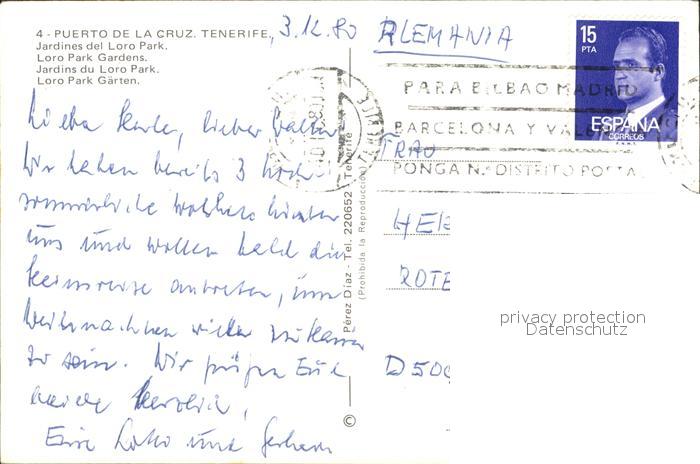 4 - PUERTO DE LA CRUZ. TENERIFE,
Jardines del Loro Park.
Loro Park Gardens.
Jardins du Loro Park.
Loro Park Gärten.
3.12.80
Liebe, lieber Walter
Wir haben bereits 3 hoch-
sommerliche Wochen hinter
uns und wollen bald die
Heimreise antreten, um
Weihnachten wieder zuhause
zu sein. Wir grüßen Euch
herzlich,
Eure und
Pérez Díaz - Tel. 220652 - Tenerife
(Prohibida la Reproducción)
©
ALEMANIA
15
PTA
ESPAÑA
CORREOS
F.N.M.T.
PARA BILBAO MADRID
BARCELONA Y VAL
PONGA N.º DISTRITO POSTAL
FRAU
HER
ROTE
D 500
privacy protection
Datenschutz